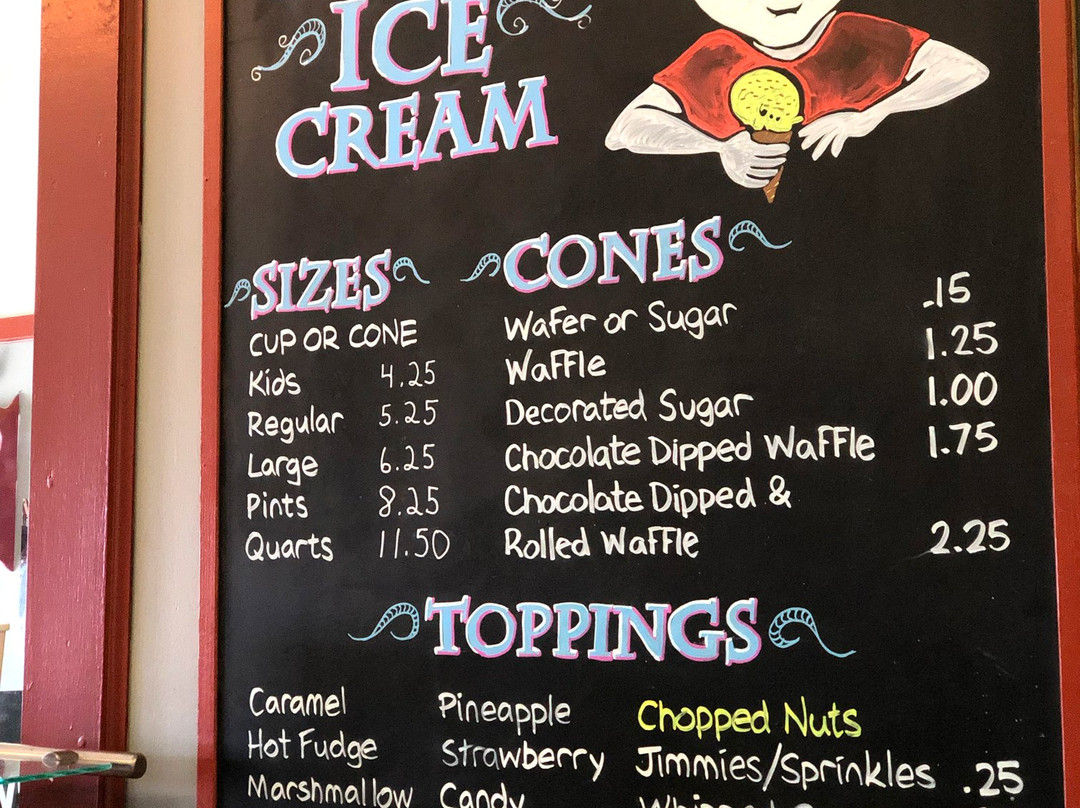 ICE
CREAM
SIZES
CUP OR CONE
Kids 4.25
Regular 5.25
Large 6.25
Pints 8.25
Quarts 11.50
CONES
Wafer or Sugar .15
Waffle 1.25
Decorated Sugar 1.00
Chocolate Dipped Waffle 1.75
Chocolate Dipped &
Rolled Waffle 2.25
TOPPINGS
Caramel Pineapple Chopped Nuts
Hot Fudge Strawberry Jimmies/Sprinkles .25
Marshmallow Candy